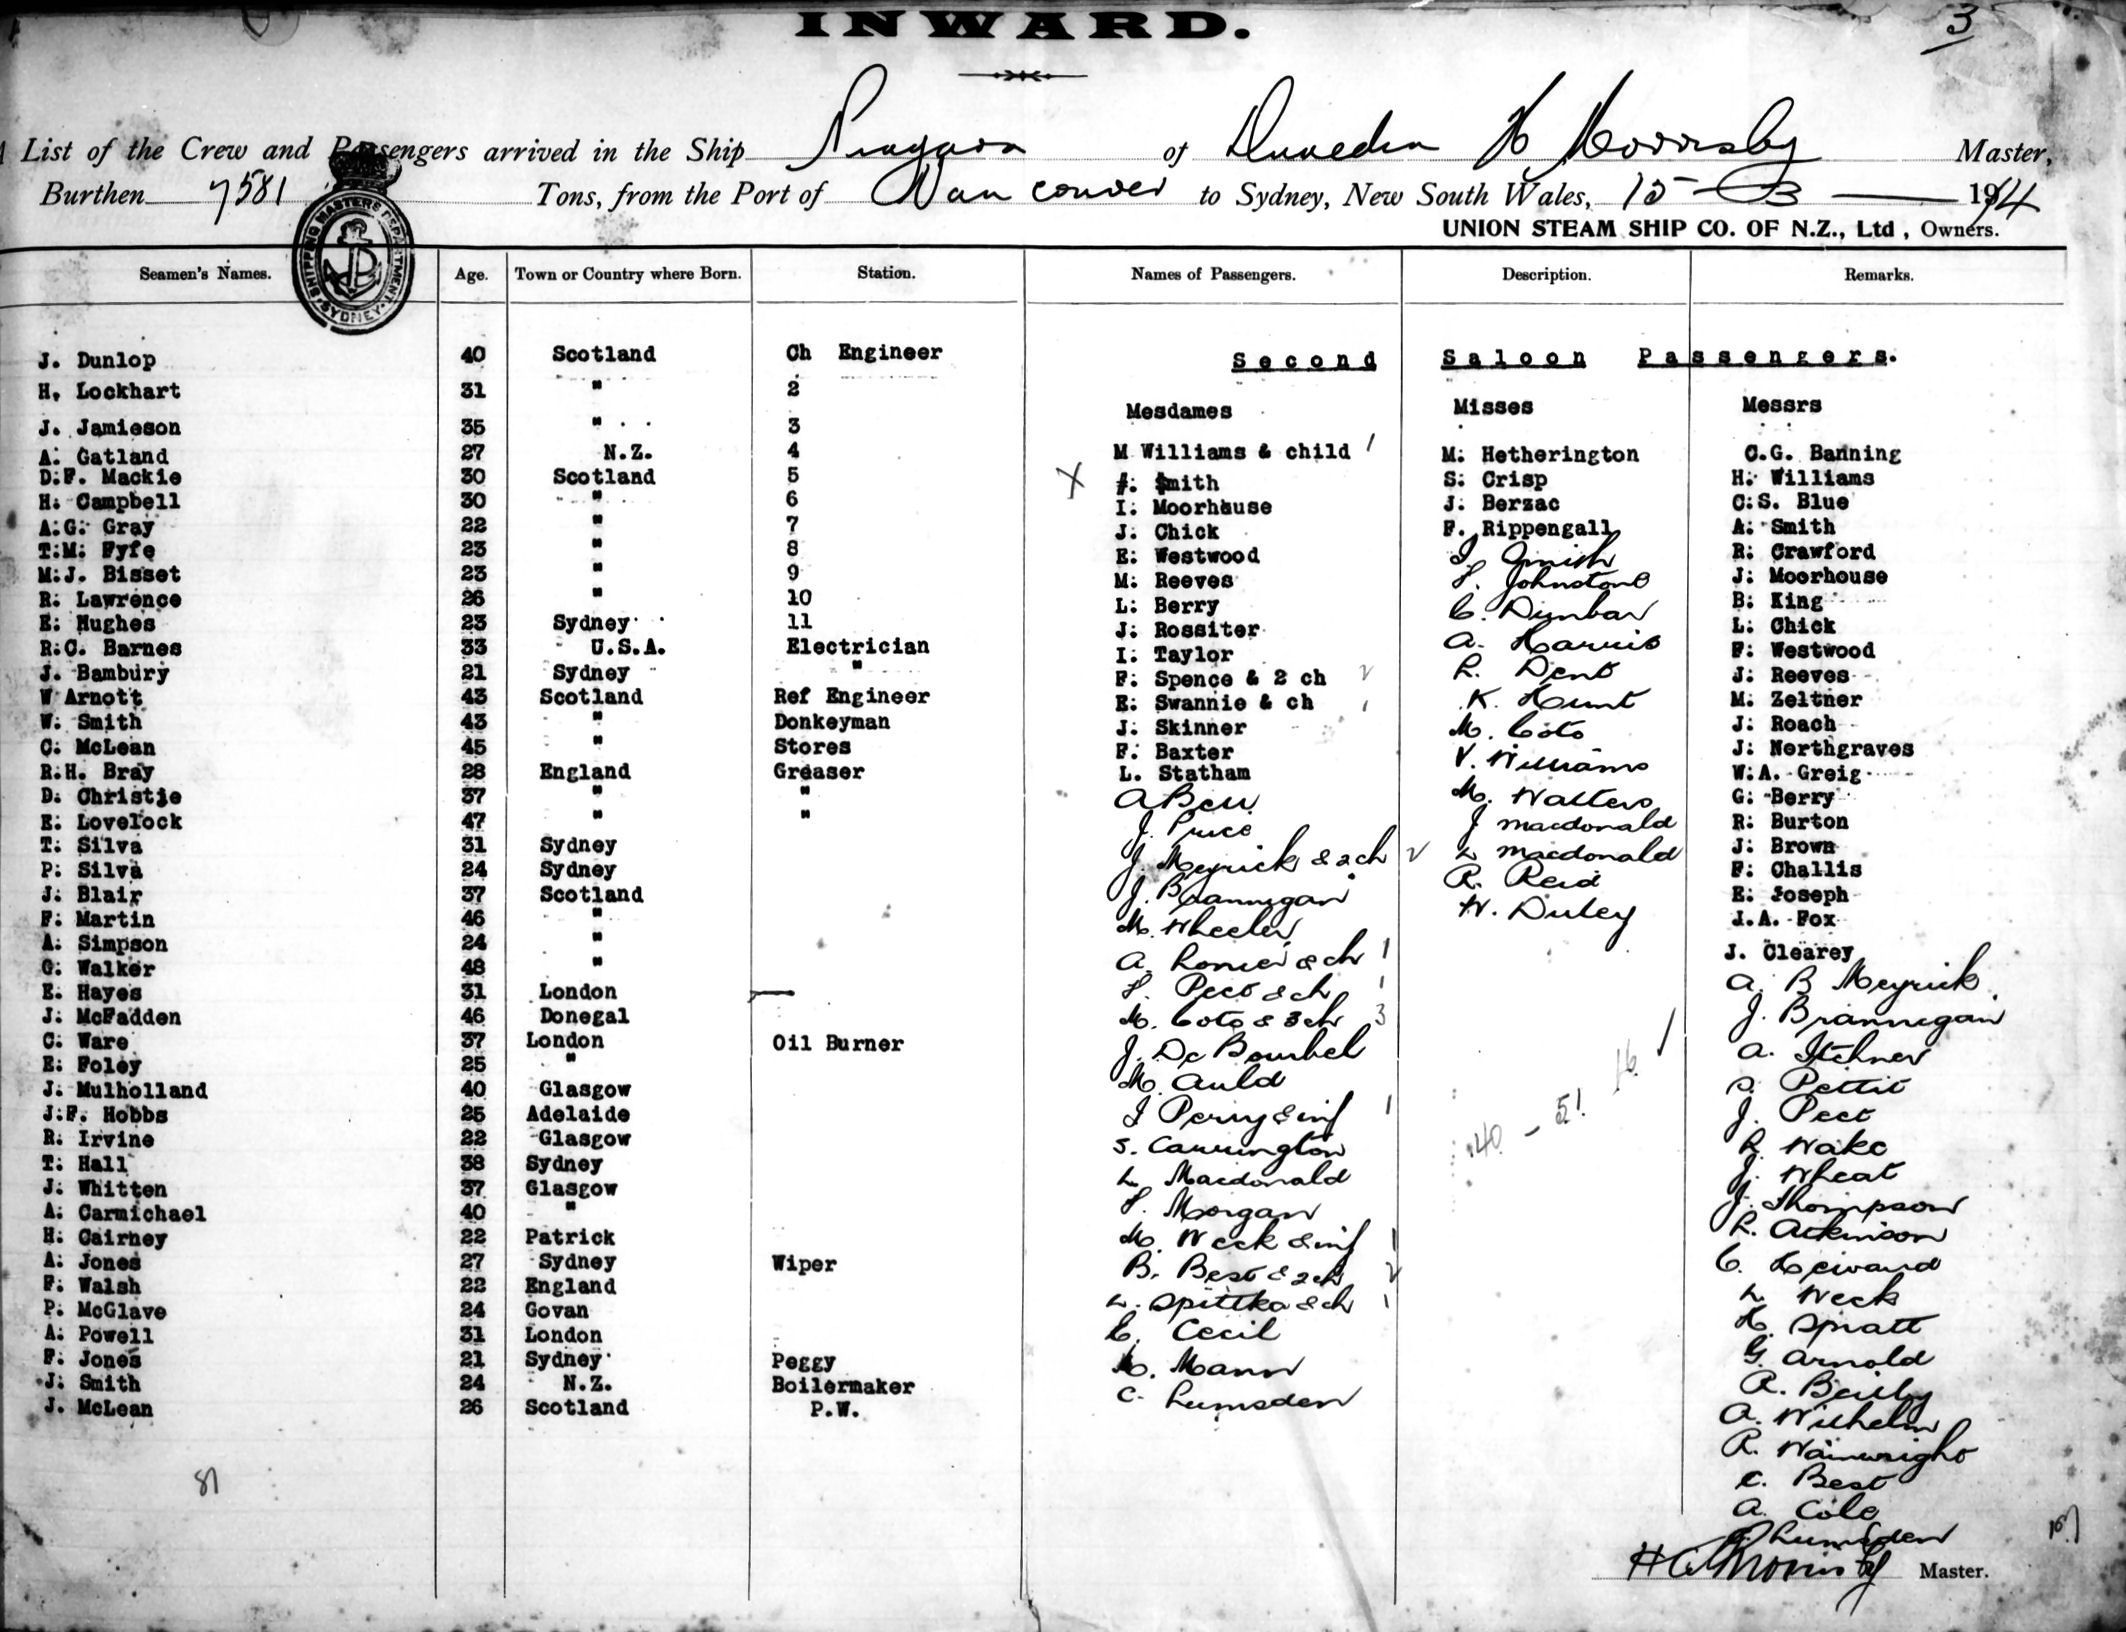 INWARD.
3
List of the Crew and Passengers arrived in the Ship Niagara of Dunedin Master,
Burthen 7581 Tons, from the Port of Vancouver to Sydney, New South Wales, 15 - 3 - 1914
UNION STEAM SHIP CO. OF N.Z., Ltd, Owners.
SHIPPING MASTERS DEPARTMENT. SYDNEY
Seamen's Names. Age. Town or Country where Born. Station.
J. Dunlop 40 Scotland Ch Engineer
H. Lockhart 31 " 2
J. Jamieson 35 " 3
A. Gatland 27 N.Z. 4
D.F. Mackie 30 Scotland 5
H. Campbell 30 " 6
A.G. Gray 22 " 7
T.M. Fyfe 23 " 8
M.J. Bisset 23 " 9
R. Lawrence 26 " 10
E. Hughes 23 Sydney 11
R.C. Barnes 33 U.S.A. Electrician
J. Bambury 21 Sydney "
W Arnott 43 Scotland Ref Engineer
W. Smith 43 " Donkeyman
C. McLean 45 " Stores
R.H. Bray 28 England Greaser
D. Christie 37 " "
E. Lovelock 47 " "
T. Silva 31 Sydney
P. Silva 24 Sydney
J. Blair 37 Scotland
F. Martin 46 "
A. Simpson 24 "
G. Walker 48 "
E. Hayes 31 London
J. McFadden 46 Donegal
C. Ware 37 London Oil Burner
E. Foley 25 "
J. Mulholland 40 Glasgow
J.F. Hobbs 25 Adelaide
R. Irvine 22 Glasgow
T. Hall 38 Sydney
J. Whitten 37 Glasgow
A. Carmichael 40 "
H. Cairney 22 Patrick
A. Jones 27 Sydney Wiper
F. Walsh 22 England
P. McGlave 24 Govan
A. Powell 31 London
F. Jones 21 Sydney Peggy
J. Smith 24 N.Z. Boilermaker
J. McLean 26 Scotland P.W.
Names of Passengers. Description. Remarks.
Second Saloon Passengers.
Mesdames
M Williams & child 1
X Smith
I. Moorhouse
J. Chick
E. Westwood
M. Reeves
L. Berry
J. Rossiter
I. Taylor
F. Spence & 2 ch 2
E. Swannie & ch 1
J. Skinner
F. Baxter
L. Statham
A Bell
J. Price
J. Meyrick & 2 ch 2
J. Brannigan
M. Wheeler
A. & ch 1
F. Peet & ch 1
M. Coto & 3 ch 3
J. De Bourbel
M. Auld
I Perry & inf 1
S. Carrington
L. Macdonald
F. Morgan
M. Weck & inf 1
B. Best & 2 ch 2
L. Spittka & ch 1
E. Cecil
M. Mann
C. Lumsden
Misses
M. Hetherington
S. Crisp
J. Berzac
F. Rippengall
I. Smith
F. Johnstone
C. Dunbar
A. Harris
R. Dent
K. Hunt
M. Coto
V. Williams
M. Walters
J Macdonald
L Macdonald
R. Reid
W. Duley
40 - 51 16
Messrs
C.G. Banning
H. Williams
C.S. Blue
A. Smith
R. Crawford
J. Moorhouse
B. King
L. Chick
F. Westwood
J. Reeves
M. Zeltner
J. Roach
J. Northgraves
W.A. Greig
G. Berry
R. Burton
J. Brown
F. Challis
E. Joseph
J.A. Fox
J. Clearey
A. B Meyrick
J. Brannigan
A.
S. Pettit
J. Peet
R Wake
J. Wheat
J. Thompson
R. Atkinson
C. Heward
L Weck
H. Spratt
G. Arnold
R. Beilby
A. Wilhelm
R. Wainwright
C. Best
A. Cole
Lumsden
107
Master.